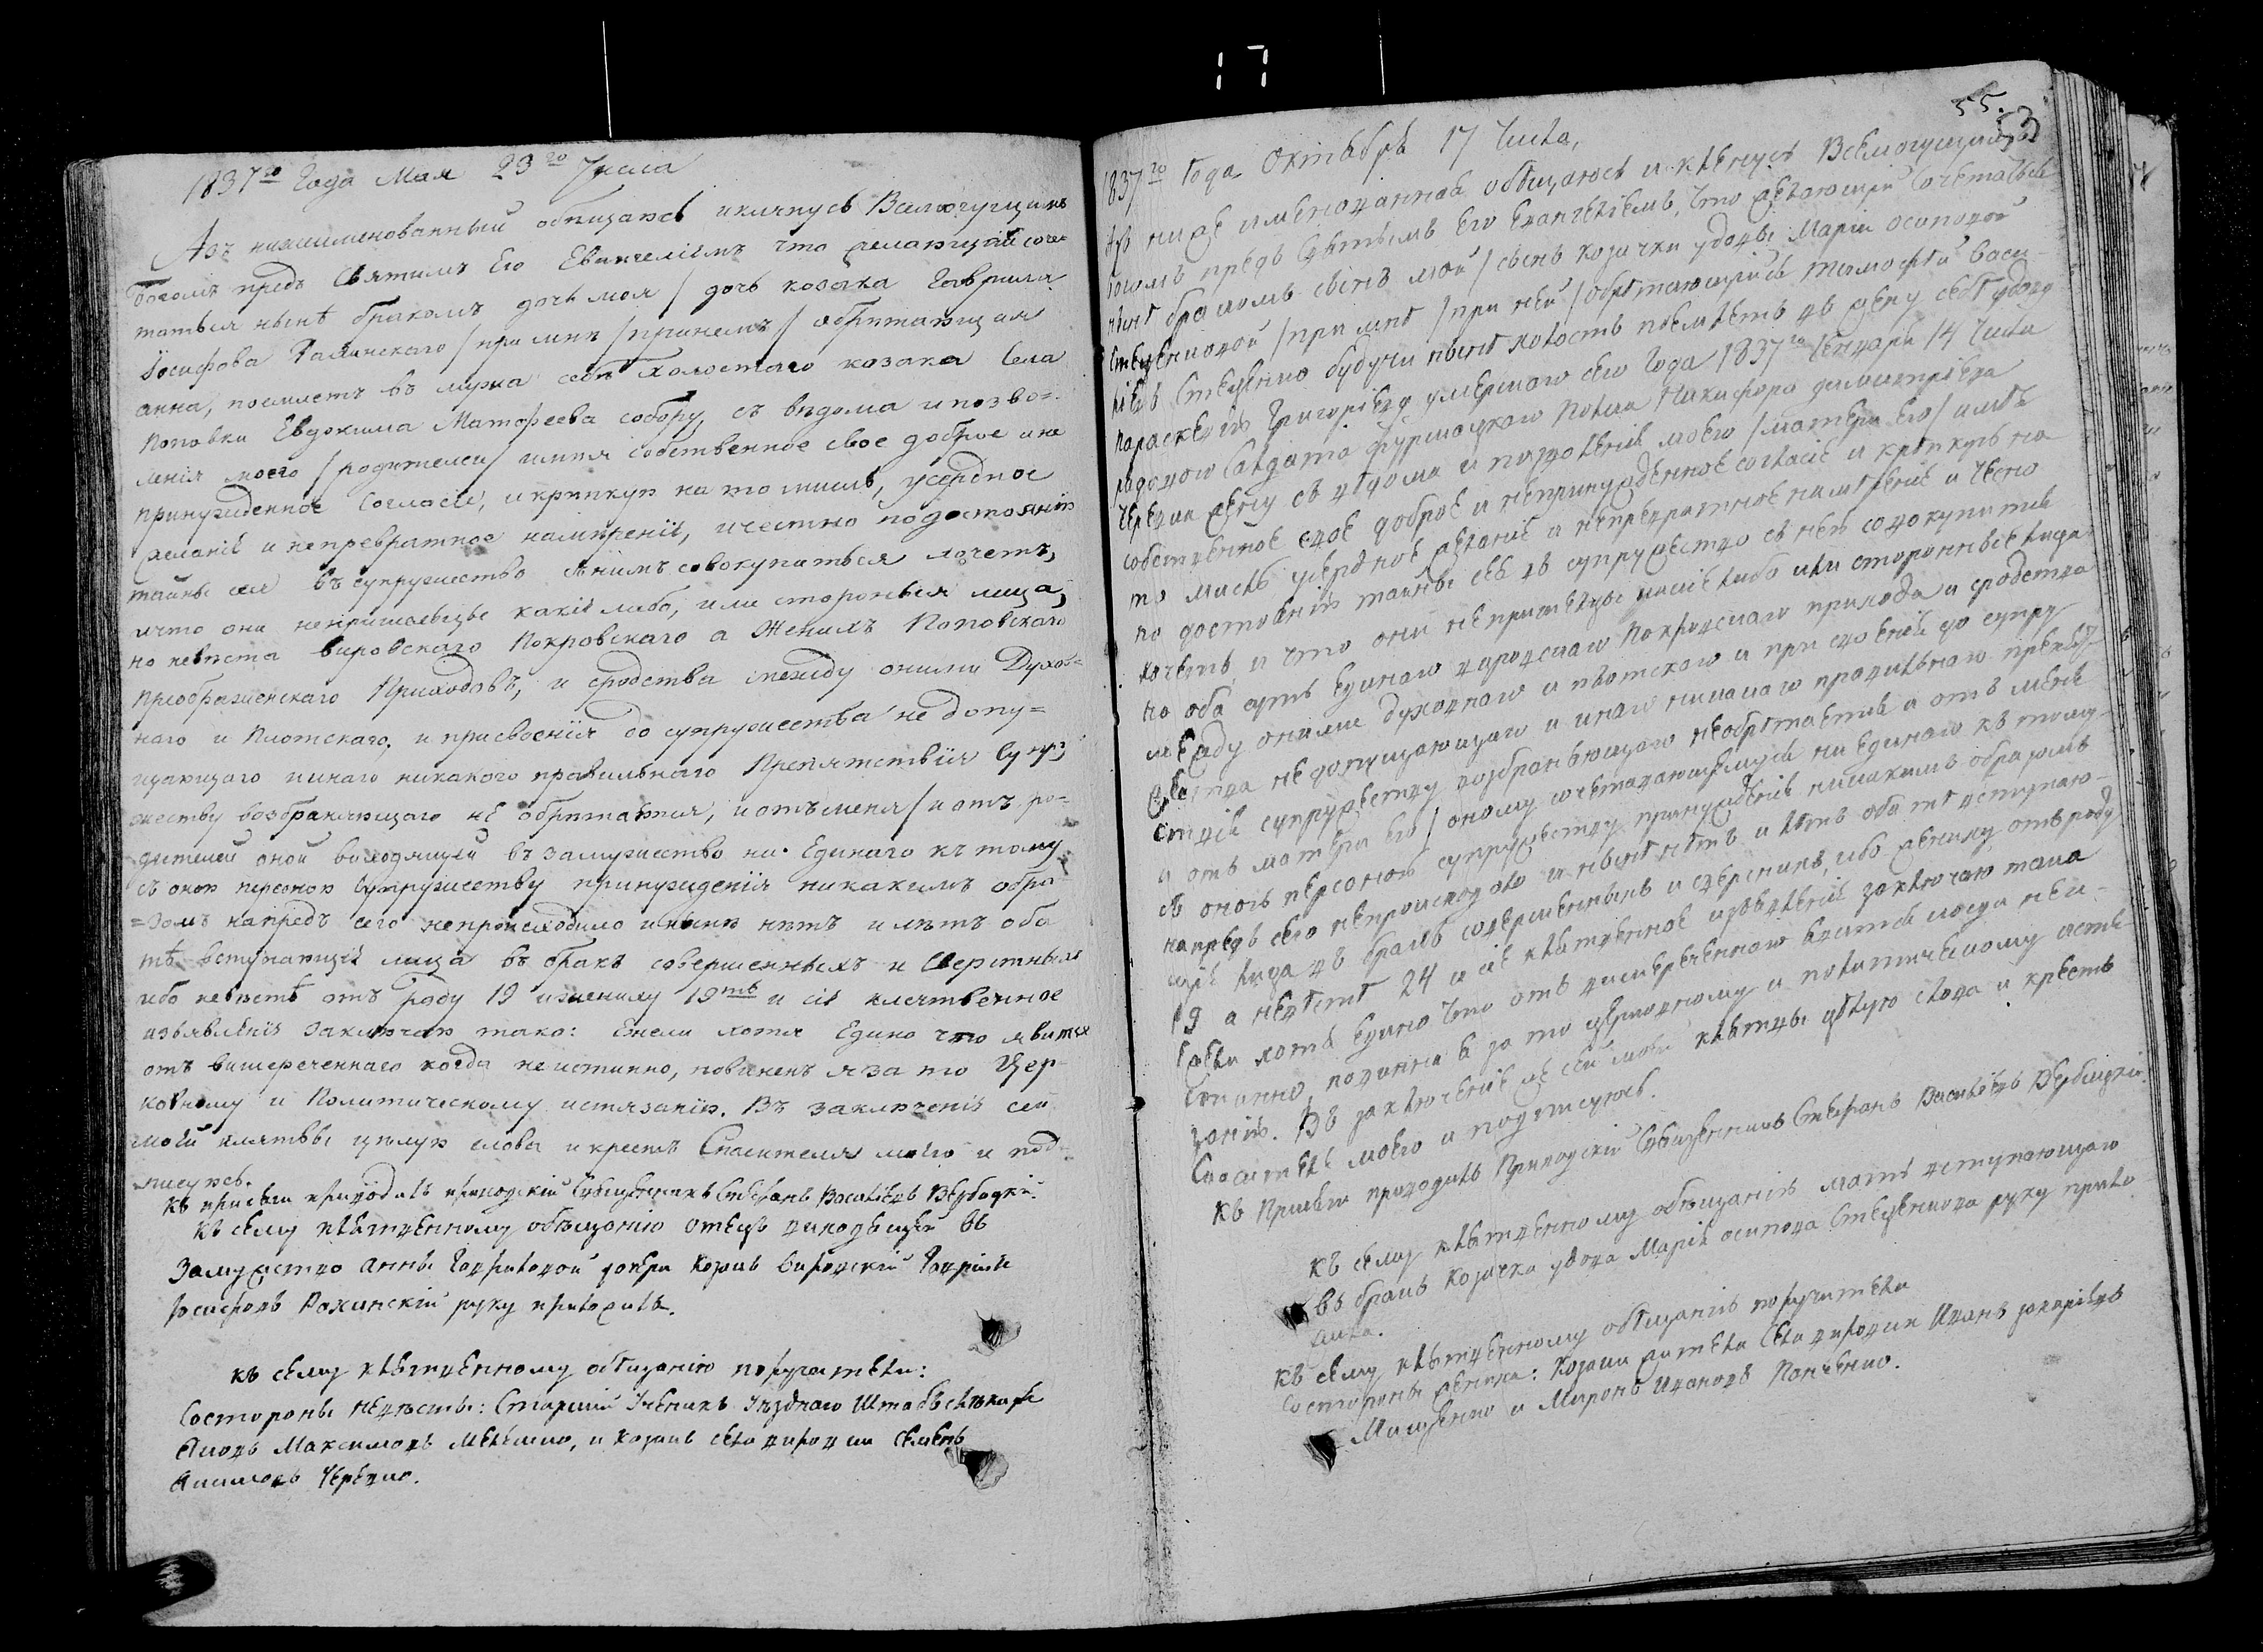 17
1837го Года Мая 23го Числа
Азъ нижеименованный обещаюсь и клянусь Всемогущимъ
Богомъ предъ Святымъ Его Евангелiемъ что желающая соче-
таться нынѣ бракомъ дочь моя / дочь козака Гаврила
Iосифова / при мнѣ / при немъ / обрѣтающая
анна, поемлетъ въ мужа себѣ Холостаго козака Села
Поповки Евдокима Матфеева собору, съ вѣдома и позво=
ленiя моего / родителей / имѣя собственное свое доброе и не
принужденное Согласiе, и крѣпкую на то мысль, усердное
желанiе и непревратное намѣренiе, и честно по достоянiю
тайны сея въ супружество с нимъ совокупиться хочетъ,
и что они непришлецы какiе либо, или стороныя лица,
но невѣста вировского Покровскаго а Женихъ Поповскаго
Преображенскаго Приходовъ, и сродства между оними Духов=
наго и Плотскаго, и присвоенiя до супружества не допу=
щающаго и инаго никакого правильнаго Препятствiя Супру
жеству возбраняющаго не обрѣтается, и отъ меня / и отъ ро=
дителей оной выходящей въ замужество ни Единаго къ тому
съ оною персоною Супружеству принужденiя никакимъ обра
=зомъ напредъ сего непроисходило и нынѣ нѣтъ и лѣтъ оба
тѣ вступающiе лица въ бракъ совершенныхъ и Сверстныхъ
ибо невѣстѣ отъ роду 19 и жениху 19ть и сiе клятвенное
изъявленiе заключаю тако: Ежели хотя Едино что явится
отъ вишереченнаго когда неистинно, повиненъ я за то Цер-
ковному и Политическому истязанiю. Въ заключенiе сей
моей клятвы цѣлую слова и крестъ Спасителя моего и под
писуюсь.
Къ присяги приводилъ приходскiй Священникъ Стефанъ Василiевъ Вербицкiй.
Къ сему клятвенному обѣщанiю отецъ виходящей въ
замужство анны Гавриловой дочери Козакъ вировскiй Гаврiилъ
Iосифовъ руку приложилъ.
Къ сему клятвенному обѣщанiю поручители:
Состороны невѣсты: Старшiй Ученикъ Уѣзднаго Штабълѣкаря
Яковъ Максимовъ, и козакъ села вировки Семенъ
Черевко.
55.
53
1837го Года Октября 17 Числа,
Азъ нижеименованная обѣщаюсь и клянусь Всемогущимъ
Богомъ предъ Святымъ Его Евангелiемъ, что желающiй Сочетаться
нынѣ бракомъ сынъ мой / сынъ козачки удовы Марiи осиповой
Стеценковой / при мнѣ / при ней / обрѣтающiйся Тимофей Васи-
лiевъ Стеценко будучи нынѣ холостъ поемлетъ въ жену себѣ удову
параскевiю Григорiеву умершаго сего Года 1837го Генваря 14 Числа
рядового Солдата полка Никифора димитрiева
Черевка жену съ вѣдома и позволенiя моего / матери его / имѣя
собственное свое доброе и непринужденное согласiе и крѣпкую на
то мисль усердное желанiе и непревратное намѣренiе и чесно
по достоянiю тайны сея въ супружество съ нею совокупитися
хочетъ, и что они непришелцы какiе либо или сторонные лица
но оба суть единаго вировскаго Покровскаго прихода и сродства
между оними духовнаго и плотскаго и присвоенiя до супру
жества недопущающаго и инаго никакаго правильнаго препят
ствiя супружеству возбраняющаго необрѣтается и отъ меня
и отъ матери его / оному сочетавающемуся ни единаго къ тому
съ оною персоною супружеству принужденiя никакимъ образомъ
напредъ сего непроисходило и нынѣ нѣтъ и лѣтъ оба тѣ вступаю-
щiе лица въ бракъ совершеннихъ и сверсникъ, ибо жениху отъ роду
19 а невѣстѣ 24 и сiе клятвенное изъявленiе заключаю тако
Ежели хотя едино что отъ вишереченнаго явится когда неи-
стинно, повинна я за то церковному и политическому истя
занiю. Въ заключенiе же сей моей клятвы цѣлую слова и крестъ
Спасителя моего и подписуюсь.
Къ Присяги приводилъ Приходскiй Священникъ Стефанъ Василiевъ Вербицкiй.
Къ сему клятвенному обѣщанiю мать вступающаго
въ бракъ Козачка удова Марiя осипова Стеценкова руку прило-
жила.
Къ сему клятвенному обѣщанiю поручители
Состороны жениха: Козаки жители села вировки Иванъ захарiевъ
Мищенко и Миронъ Ивановъ Панченко.